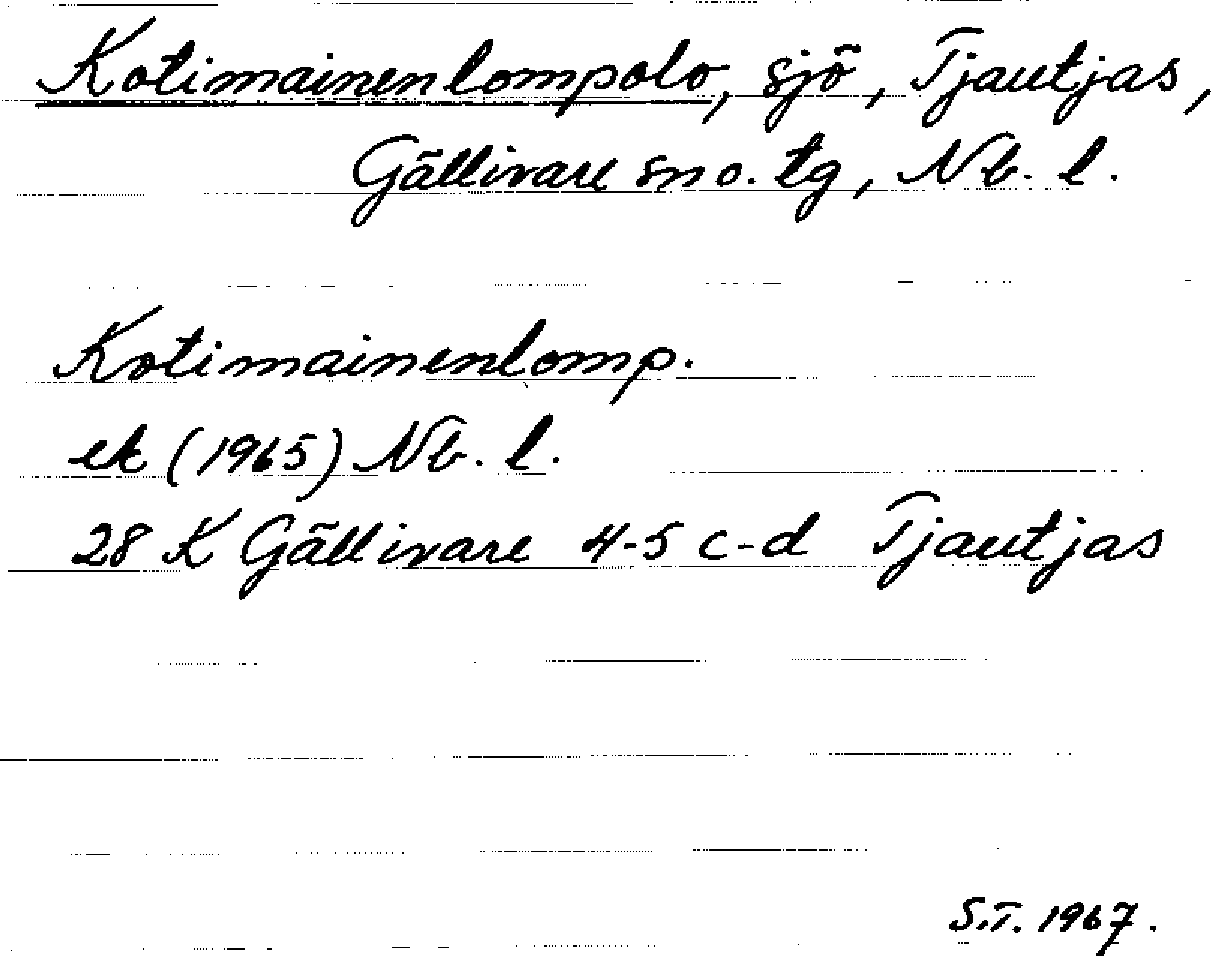 Kotimainenlompolo, sjö, Tjautjas,
Gällivare sn o. tg, Nb. l.
Kotimainenlomp.
ek (1965) Nb. l.
28 K Gällivare 4-5 c-d Tjautjas
S.T. 1967.